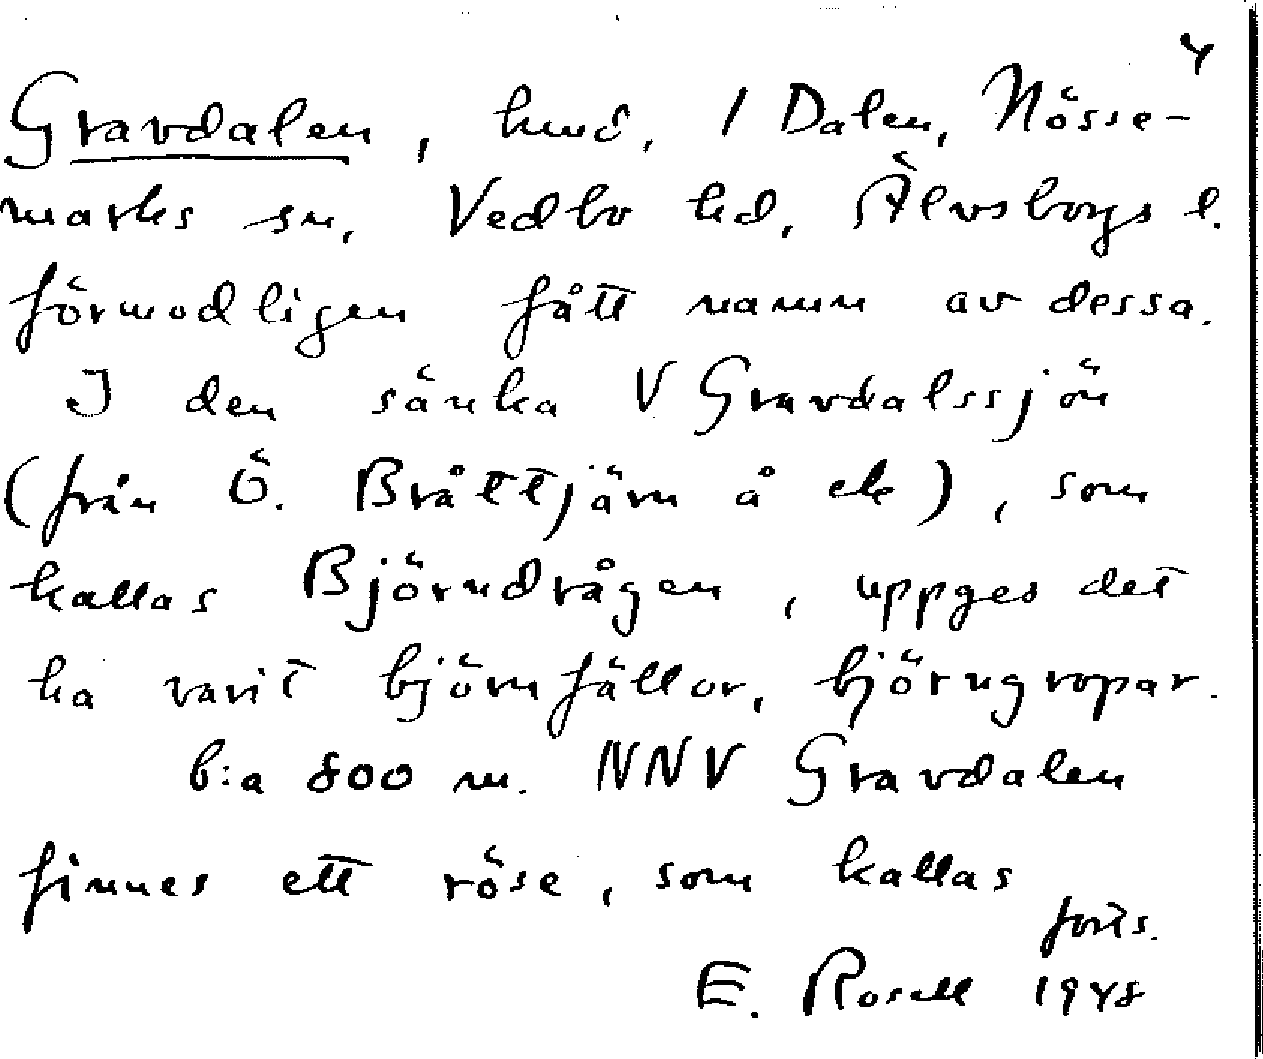 4
Gravdalen, hmd. 1 Dalen, Nösse-
marks sn, Vedbo hd, Älvsborgs l.
förmodligen fått namn av dessa.
I den sänka V Gravdalssjön
(från Ö. Bråttjärn å ek), som
kallas Björndrågen, uppges det
ha varit björnfällor, björngropar.
C:a 800 m. NNV Gravdalen
finnes ett röse, som kallas
forts.
E. Rosell 1948